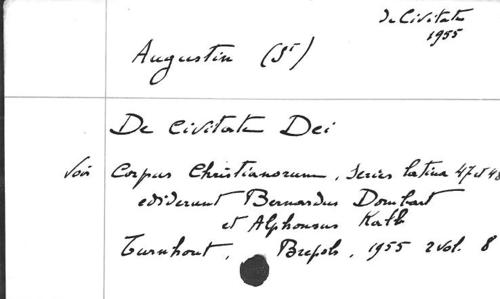 De Civitate
1955
Augustin (St)
De Civitate Dei
Voir Corpus Christianorum, Series latina 47 et 48
ediderunt Bernardus Dombart
et Alphonsus Kalb
Turnhout, Brepols, 1955 2 vol. 8